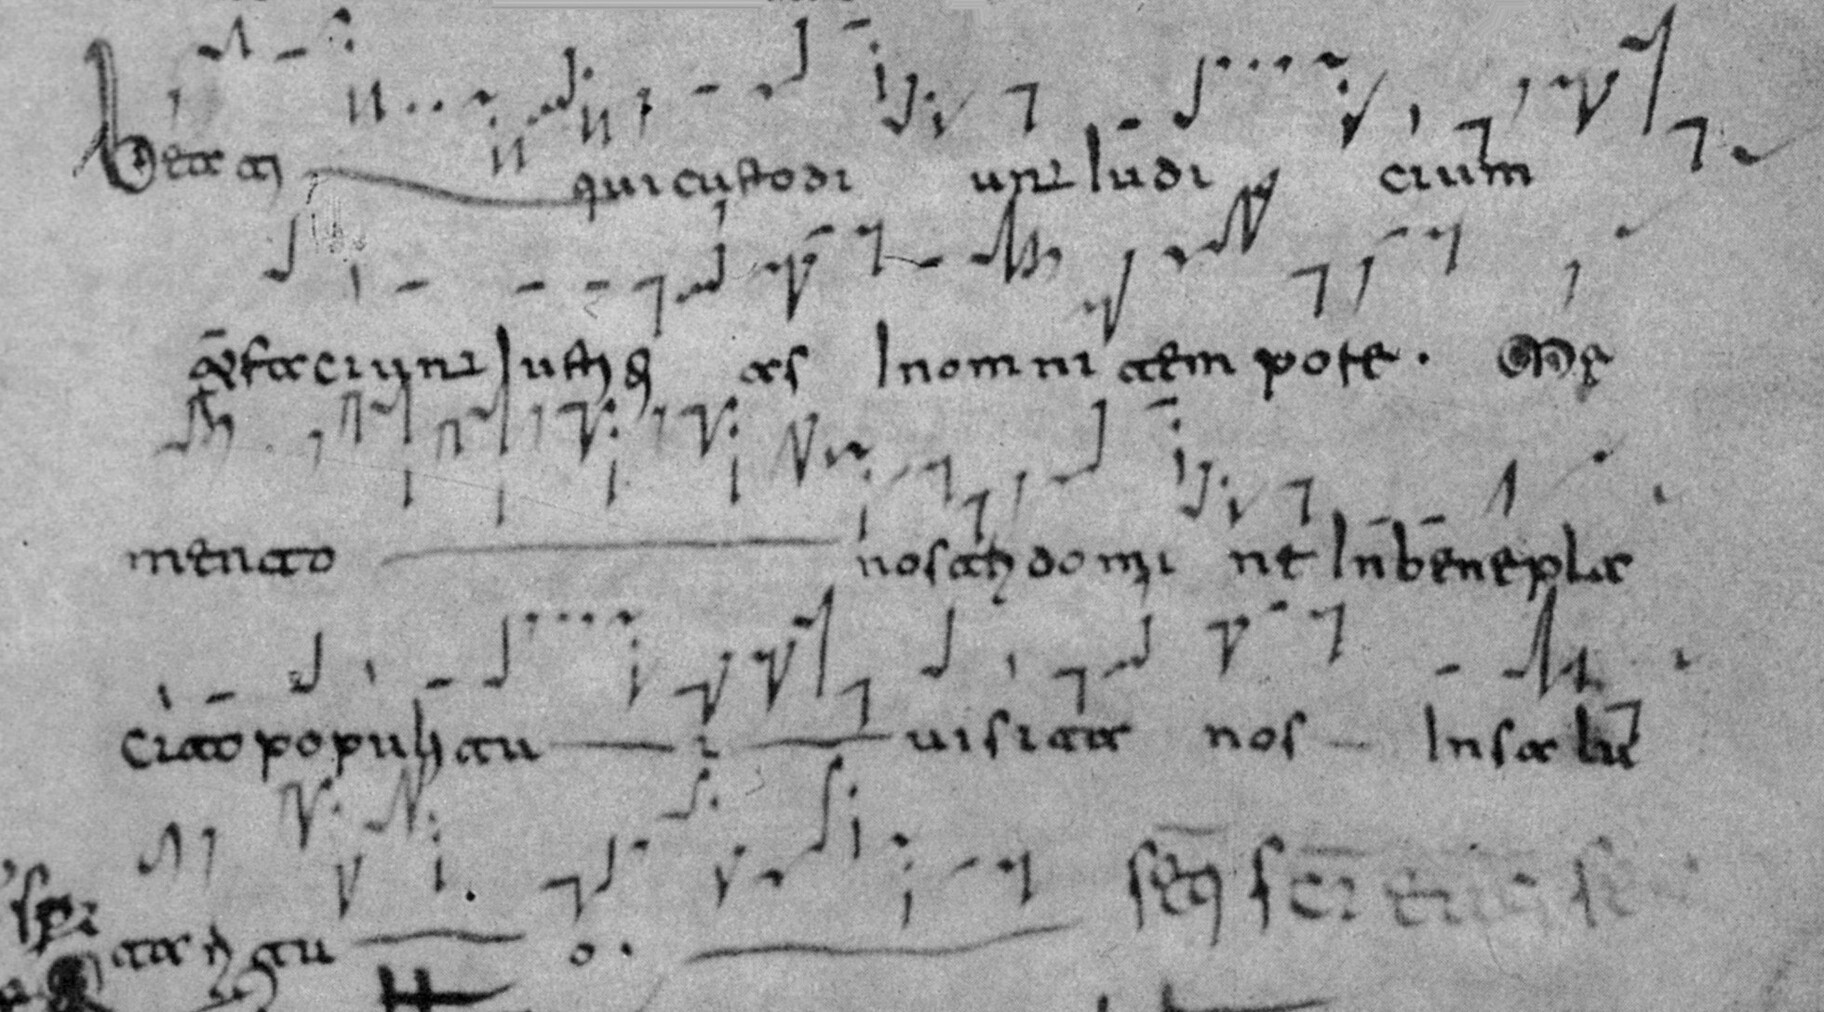 Beati qui custodi unt Iudi cium
et faciunt Iustiti as In omni tempore. Me
mento nostri domi ne In benepla
cito populi tu i uisita nos In salu
tari tu o. seq sci